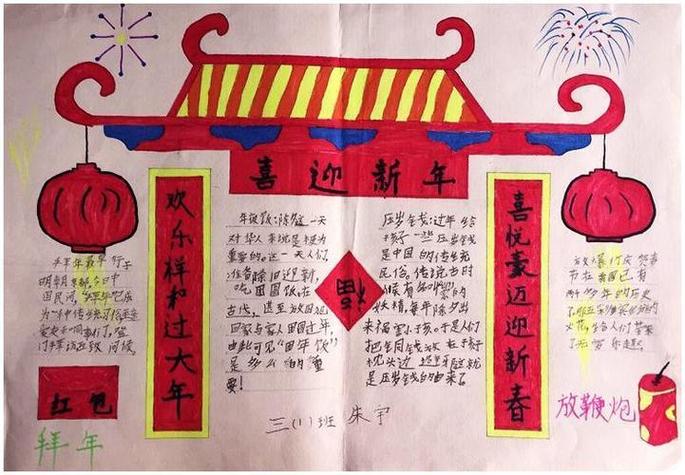 喜迎新年
欢乐祥和过大年
拜年最早行于
明朝 今日中
国民间
为一种传统习俗
红包
拜年
年夜饭:除夕这一天
对华人来说是极为
重要的。这一天人们
准备除旧迎新,
吃团圆饭。在
古代，甚至
回家与家人团圆过年,
由此可见“团年饭”
是多么的重
要!
福
压岁钱:过年给
孩子一些压岁钱
是中国的传统
民俗,传说古时
候有
妖精,每年除夕出
来祸害小孩,于是人们
把 铜钱放在孩子
枕头边 这就
是压岁钱的由来了
喜悦豪迈迎新春
节在我国已有
两千多年的历史
火花,给人们带来
了无穷乐趣。
放鞭炮
三(1)班 朱宇